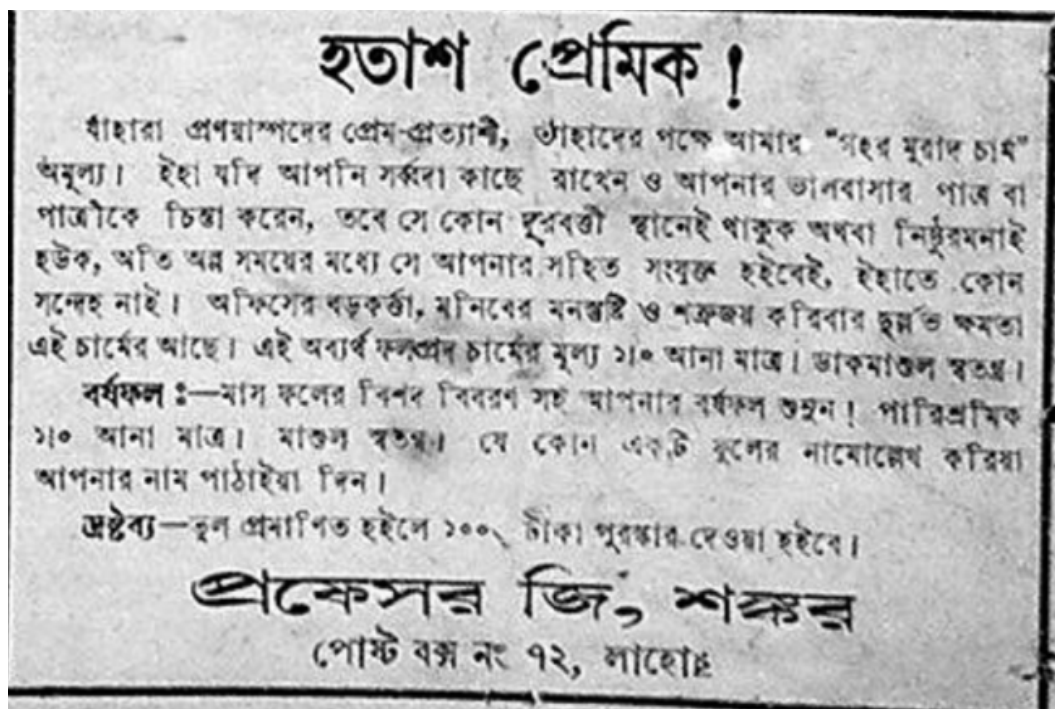 হতাশ প্রেমিক !
যাঁহারা প্রণয়াস্পদের প্রেম-প্রত্যাশী, তাঁহাদের পক্ষে আমার "গহর মুরাদ চার্ম"
অমূল্য। ইহা যদি আপনি সর্ব্বদা কাছে রাখেন ও আপনার ভালবাসার পাত্র বা
পাত্রীকে চিন্তা করেন, তবে সে কোন দূরবর্ত্তী স্থানেই থাকুক অথবা নিষ্ঠুরমনাই
হউক, অতি অল্প সময়ের মধ্যে সে আপনার সহিত সংযুক্ত হইবেই, ইহাতে কোন
সন্দেহ নাই। অফিসের বড়কর্ত্তা, মনিবের মনস্তুষ্টি ও শত্রুজয় করিবার দুর্ল্লভ ক্ষমতা
এই চার্মের আছে। এই অব্যর্থ ফলপ্রদ চার্মের মূল্য ১৷৹ আনা মাত্র। ডাকমাশুল স্বতন্ত্র।
বর্ষফল ঃ—মাস ফলের বিশদ বিবরণ সহ আপনার বর্ষফল শুনুন! পারিশ্রমিক
১৷৹ আনা মাত্র। মাশুল স্বতন্ত্র। যে কোন একটি ফুলের নামোল্লেখ করিয়া
আপনার নাম পাঠাইয়া দিন।
দ্রষ্টব্য—ভুল প্রমাণিত হইলে ১০০৲ টাকা পুরস্কার দেওয়া হইবে।
প্রফেসর জি, শঙ্কর
পোষ্ট বক্স নং ৭২, লাহোর